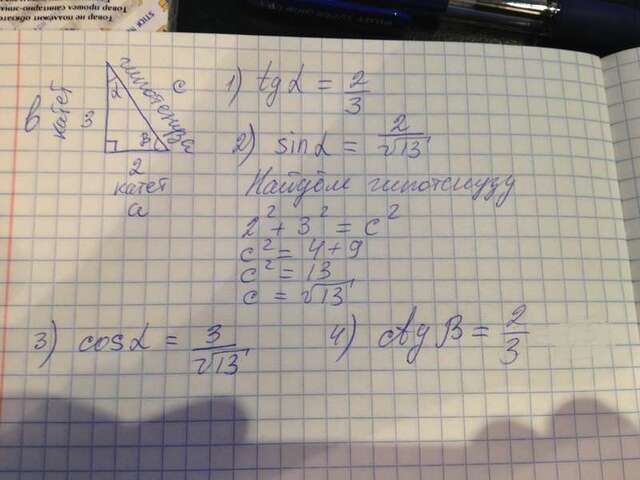 Товар не подлежит обязател
Товар прошел санитарно-эпиде
в
катет
3
α
гипотенуза
с
β
2
катет
а
1) tg α = 2/3
2) sin α = 2/√13
Найдём гипотенузу
2² + 3² = c²
c² = 4 + 9
c² = 13
c = √13
3) cos α = 3/√13
4) ctg β = 2/3